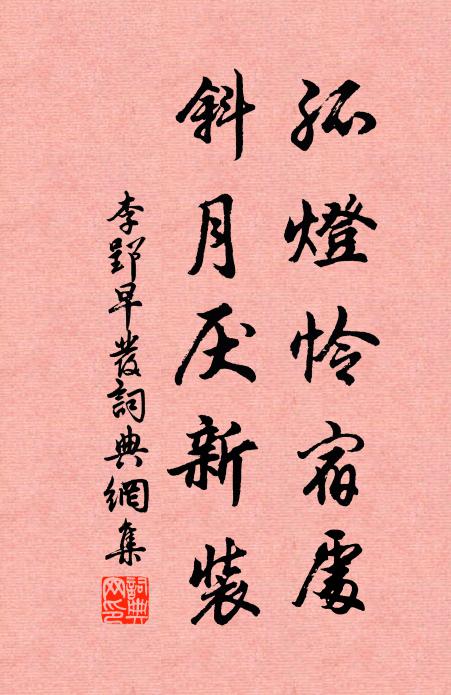 孤燈怜宿處
斜月厌新裝
李郢早發詞典網集
詞典网印